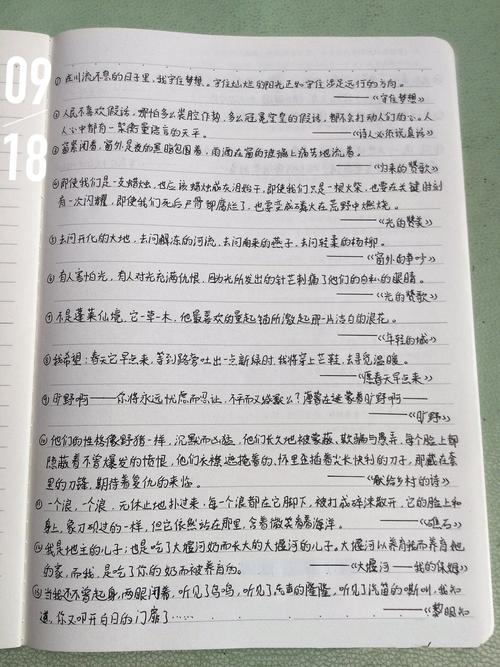 09
18
① 在川流不息的日子里，我守住梦想。守住灿烂的阳光正如守住涉足远行的方向。
——《守住梦想》
② 人民不喜欢假话，哪怕多么装腔作势，多么冠冕堂皇的假话，都不会打动人们的心。人
人心中都有一架衡量语言的天平。 ——《诗人必须说真话》
③ 窗紧闭着，窗外是夜的黑暗包围着，雨滴在窗的玻璃上痛苦地流着。
——《归来的赞歌》
④ 即使我们是一支蜡烛，也应该蜡炬成灰泪始干，即使我们只是一根火柴，也要在关键时刻
有一次闪耀，即使我们死后尸骨都腐烂了，也要变成磷火在荒野中燃烧。
——《光的赞美》
⑤ 去问开化的大地，去问解冻的河流，去问南来的燕子，去问轻柔的杨柳。
——《窗外的争吵》
⑥ 有人害怕光，有人对光充满仇恨，因为光所发出的针芒刺痛了他们的自私的眼睛。
——《光的赞歌》
⑦ 不是蓬莱仙境，它一草一木，他最喜欢的是起锚所激起那一片洁白的浪花。
——《年轻的城》
⑧ 我希望：春天它早点来，等到路旁吐出一点新绿时，我将穿上芒鞋，去寻觅温暖。
——《愿春天早点来》
⑨ 旷野啊——你将永远忧虑而容让，不平而又缄默么？薄雾在迷蒙着旷野啊——
——《旷野》
⑩ 他们的性格像野猪一样，沉默而凶猛，他们长久地被蒙蔽、欺骗与愚弄，每个脸上都
隐蔽着不曾爆发的愤恨，他们衣襟遮掩着的，怀里歪插着尖长快利的刀子，那藏在套
里的刀锋，期待着复仇的来临。 ——《献给乡村的诗》
⑪ 一个浪，一个浪，无休止地扑过来，每一个浪都在它脚下，被打成碎沫散开，它的脸上和
身上，象刀砍过的一样，但它依然站在那里，含着微笑看着海洋。 ——《礁石》
⑫ 我是地主的儿子；也是吃了大堰河奶而长大的大堰河的儿子。大堰河以养育我而养育她
的家，而我，是吃了你的奶而被养育的。 ——《大堰河——我的保姆》
⑬ 当我还不曾起身，两眼闭着，听见了鸟鸣，听见了车声的隆隆，听见了汽笛的嘶叫，我知
道，你又叩开白日的门扉了…… ——《黎明的